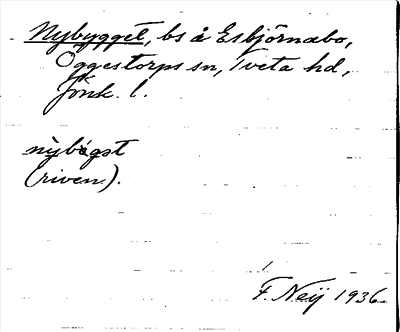 Nybygget, bs å Esbjörnabo,
Öggestorps sn, Tveta hd,
Jönk. l.
nỳbògst
(riven).
F. Neij 1936